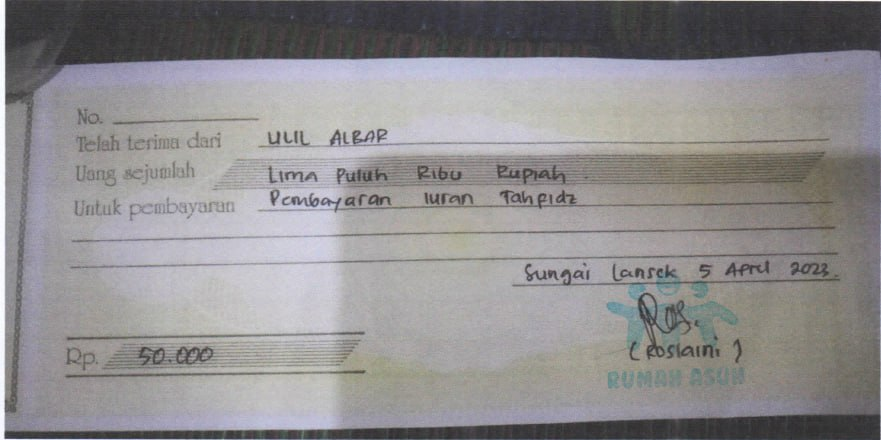 No.
Telah terima dari ULIL ALBAR
Uang sejumlah Lima Puluh Ribu Rupiah.
Untuk pembayaran Pembayaran Iuran Tahfidz
Sungai Lansek 5 April 2023.
Ros.
Rp. 50.000
(Roslaini)
RUMAH ASUH